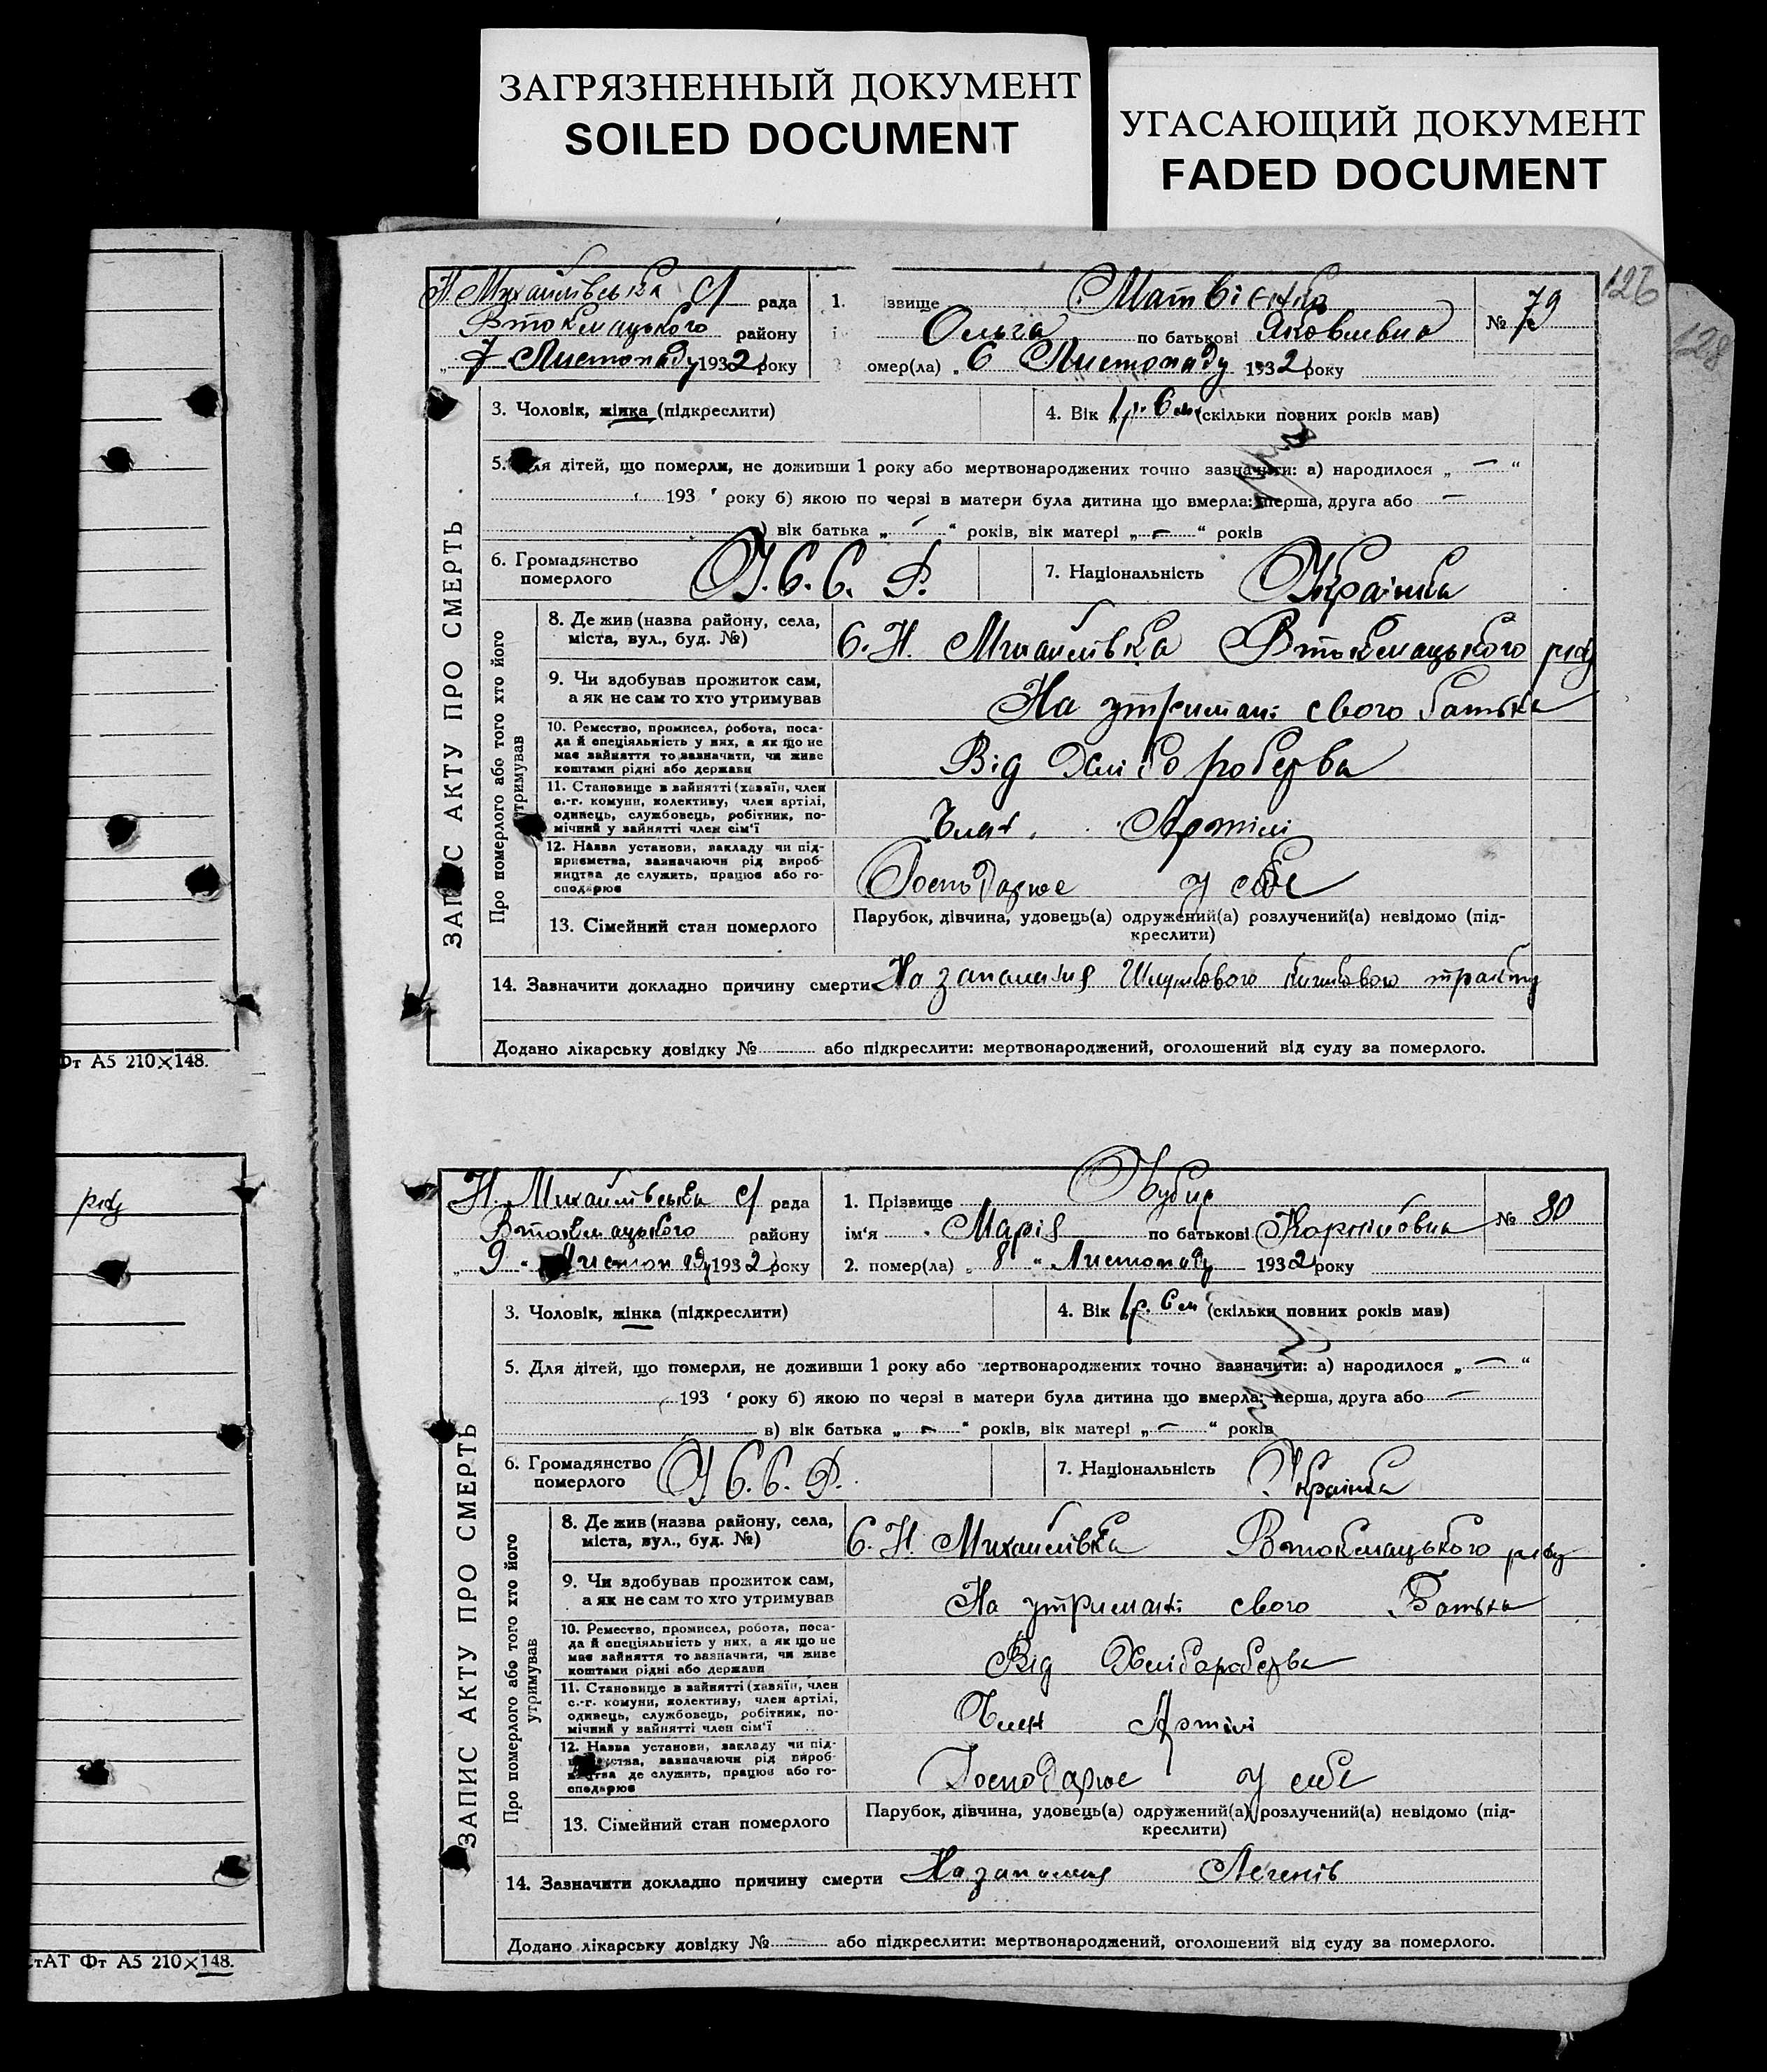 ЗАГРЯЗНЕННЫЙ ДОКУМЕНТ
SOILED DOCUMENT
УГАСАЮЩИЙ ДОКУМЕНТ
FADED DOCUMENT
126
128
Н. Михайлівська с/ рада
Втокмацького району
„ 7 Листопаду 1932 року
1. ізвище
Ольга по батькові Яковлевна
омер(ла) „ 6 Листопаду 1932 року
№ 79
3. Чоловік, жінка (підкреслити)
4. Вік 1 р. 6 м (скільки повних років мав)
5. Для дітей, що померли, не доживши 1 року або мертвонароджених точно зазначити: а) народилося „ — “
193 ' року б) якою по черзі в матери була дитина що вмерла: перша, друга або —
) вік батька „ — “ років, вік матері „ — “ років
6. Громадянство
померлого
У.С.С.Р.
7. Національність Українка
ЗАПИС АКТУ ПРО СМЕРТЬ
Про померлого або того хто його
утримував
8. Де жив (назва району, села,
міста, вул., буд. №)
С. Н. Михайлівка Втокмацького р-ду
9. Чи здобував прожиток сам,
а як не сам то хто утримував
На утримані свого батька
10. Ремество, промисел, робота, поса-
да й спеціяльність у них, а як що не
має зайняття то зазначити, чи живе
коштами рідні або держави
Від Хліборобства
11. Становище в зайнятті (хазяїн, член
с.-г. комуни, колективу, член артілі,
одинець, службовець, робітник, по-
мічний у зайнятті член сім'ї
Член Артілі
12. Назва установи, закладу чи під-
приємства, зазначаючи рід вироб-
ництва де служить, працює або го-
сподарює
Господарює у себе
13. Сімейний стан померлого
Парубок, дівчина, удовець(а) одружений(а) розлучений(а) невідомо (під-
креслити)
14. Зазначити докладно причину смерти На запаления Шлункового кишкового тракту
Додано лікарську довідку № або підкреслити: мертвонароджений, оголошений від суду за померлого.
Фт А5 210×148.
Н. Михайлівська с/ рада
Втокмацького району
„ 9 „ Листопаду 1932 року
1. Прізвище
ім'я Марія по батькові Корніловна
2. помер(ла) „ 8 “ Листопаду 1932 року
№ 80
3. Чоловік, жінка (підкреслити)
4. Вік 1 р. 6 м (скільки повних років мав)
5. Для дітей, що померли, не доживши 1 року або мертвонароджених точно зазначити: а) народилося „ — “
193 ' року б) якою по черзі в матери була дитина що вмерла: перша, друга або —
в) вік батька „ — “ років, вік матері „ — “ років
6. Громадянство
померлого
У.С.С.Р.
7. Національність Українка
ЗАПИС АКТУ ПРО СМЕРТЬ
Про померлого або того хто його
утримував
8. Де жив (назва району, села,
міста, вул., буд. №)
С. Н. Михайлівка Втокмацького р-ду
9. Чи здобував прожиток сам,
а як не сам то хто утримував
На утримані свого Батька
10. Ремество, промисел, робота, поса-
да й спеціяльність у них, а як що не
має зайняття то зазначити, чи живе
коштами рідні або держави
Від Хліборобства
11. Становище в зайнятті (хазяїн, член
с.-г. комуни, колективу, член артілі,
одинець, службовець, робітник, по-
мічний у зайнятті член сім'ї
Член Артілі
12. Назва установи, закладу чи під-
приємства, зазначаючи рід вироб-
ництва де служить, працює або го-
сподарює
Господарює у себе
13. Сімейний стан померлого
Парубок, дівчина, удовець(а) одружений(а) розлучений(а) невідомо (під-
креслити)
14. Зазначити докладно причину смерти На запаления Легенів
Додано лікарську довідку № або підкреслити: мертвонароджений, оголошений від суду за померлого.
р-ду
тАТ Фт А5 210×148.